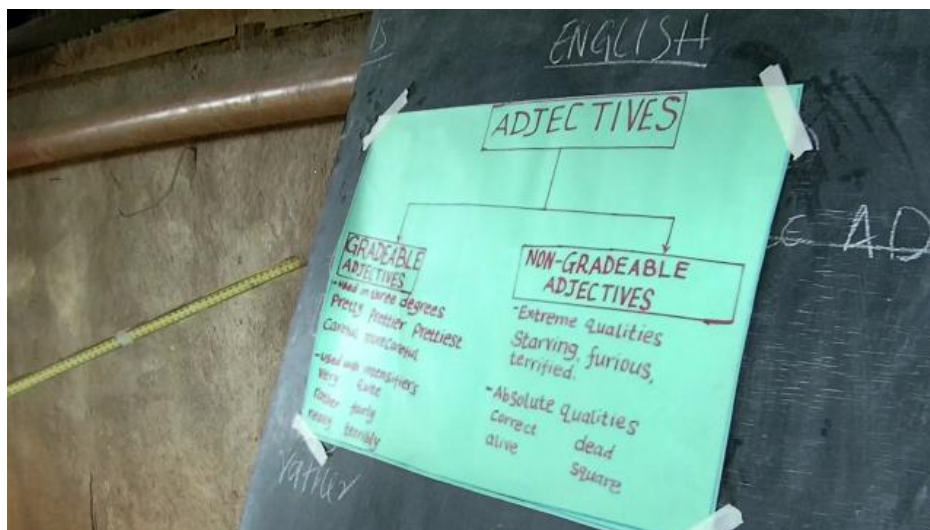 ENGLISH
ADJECTIVES
GRADEABLE
ADJECTIVES
-used in three degrees
Pretty Prettier Prettiest
Careful morecareful
-used with intensifiers
very quite
rather fairly
really terribly
NON-GRADEABLE
ADJECTIVES
-Extreme qualities
Starving, furious,
terrified.
-Absolute qualities
correct dead
alive
square
AD
rather